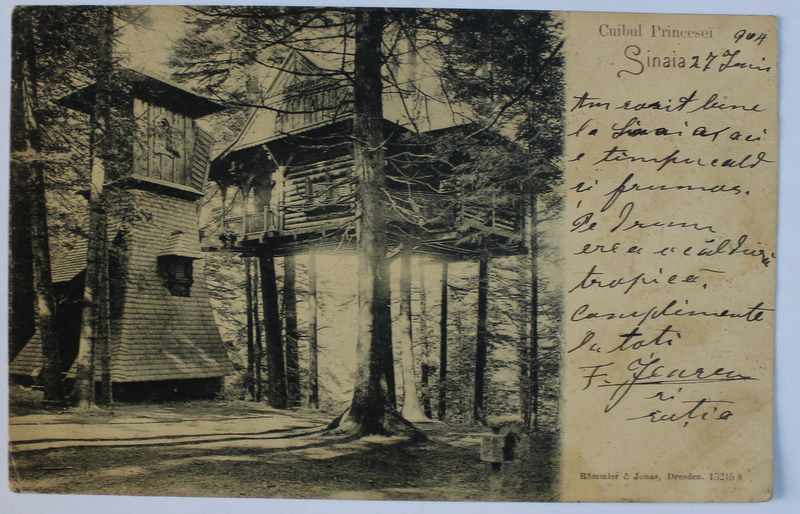 Cuibul Princesei
904
Sinaia 27 Junie
Am sosit bine
la Sinaia și aci
e timpu cald
și frumos.
Pe drum
era o căldură
tropică.
Complimente
la toți
F.
și
soția
Römmler & Jonas, Dresden. 15245 s